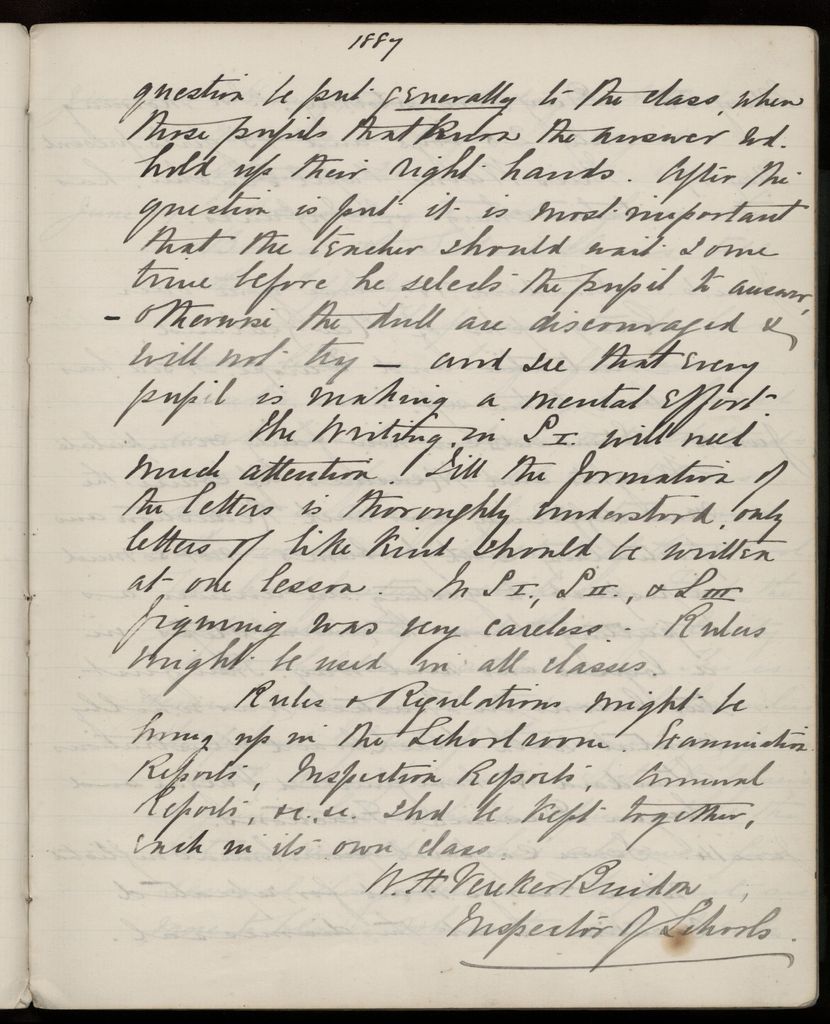 1887
question be put generally to the class, when
those pupils that know the answer wd.
hold up their right hands. After the
question is put it is most important
that the teacher should wait some
time before he selects the pupil to answer,
- otherwise the dull are discouraged &
will not try - and see that every
pupil is making a mental effort.
The Writing in S I. will need
much attention. Till the formation of
the letters is thoroughly understood, only
letters of like kind should be written
at one lesson. In S I., S II., & S III
figuring was very careless. Rulers
might be used in all classes.
Rules & Regulations might be
hung up in the Schoolroom. Examination
Reports, Inspection Reports, Annual
Reports, &c. &c. shd be kept together,
each in its own class.
W. H. Vereker Bindon,
Inspector of Schools.